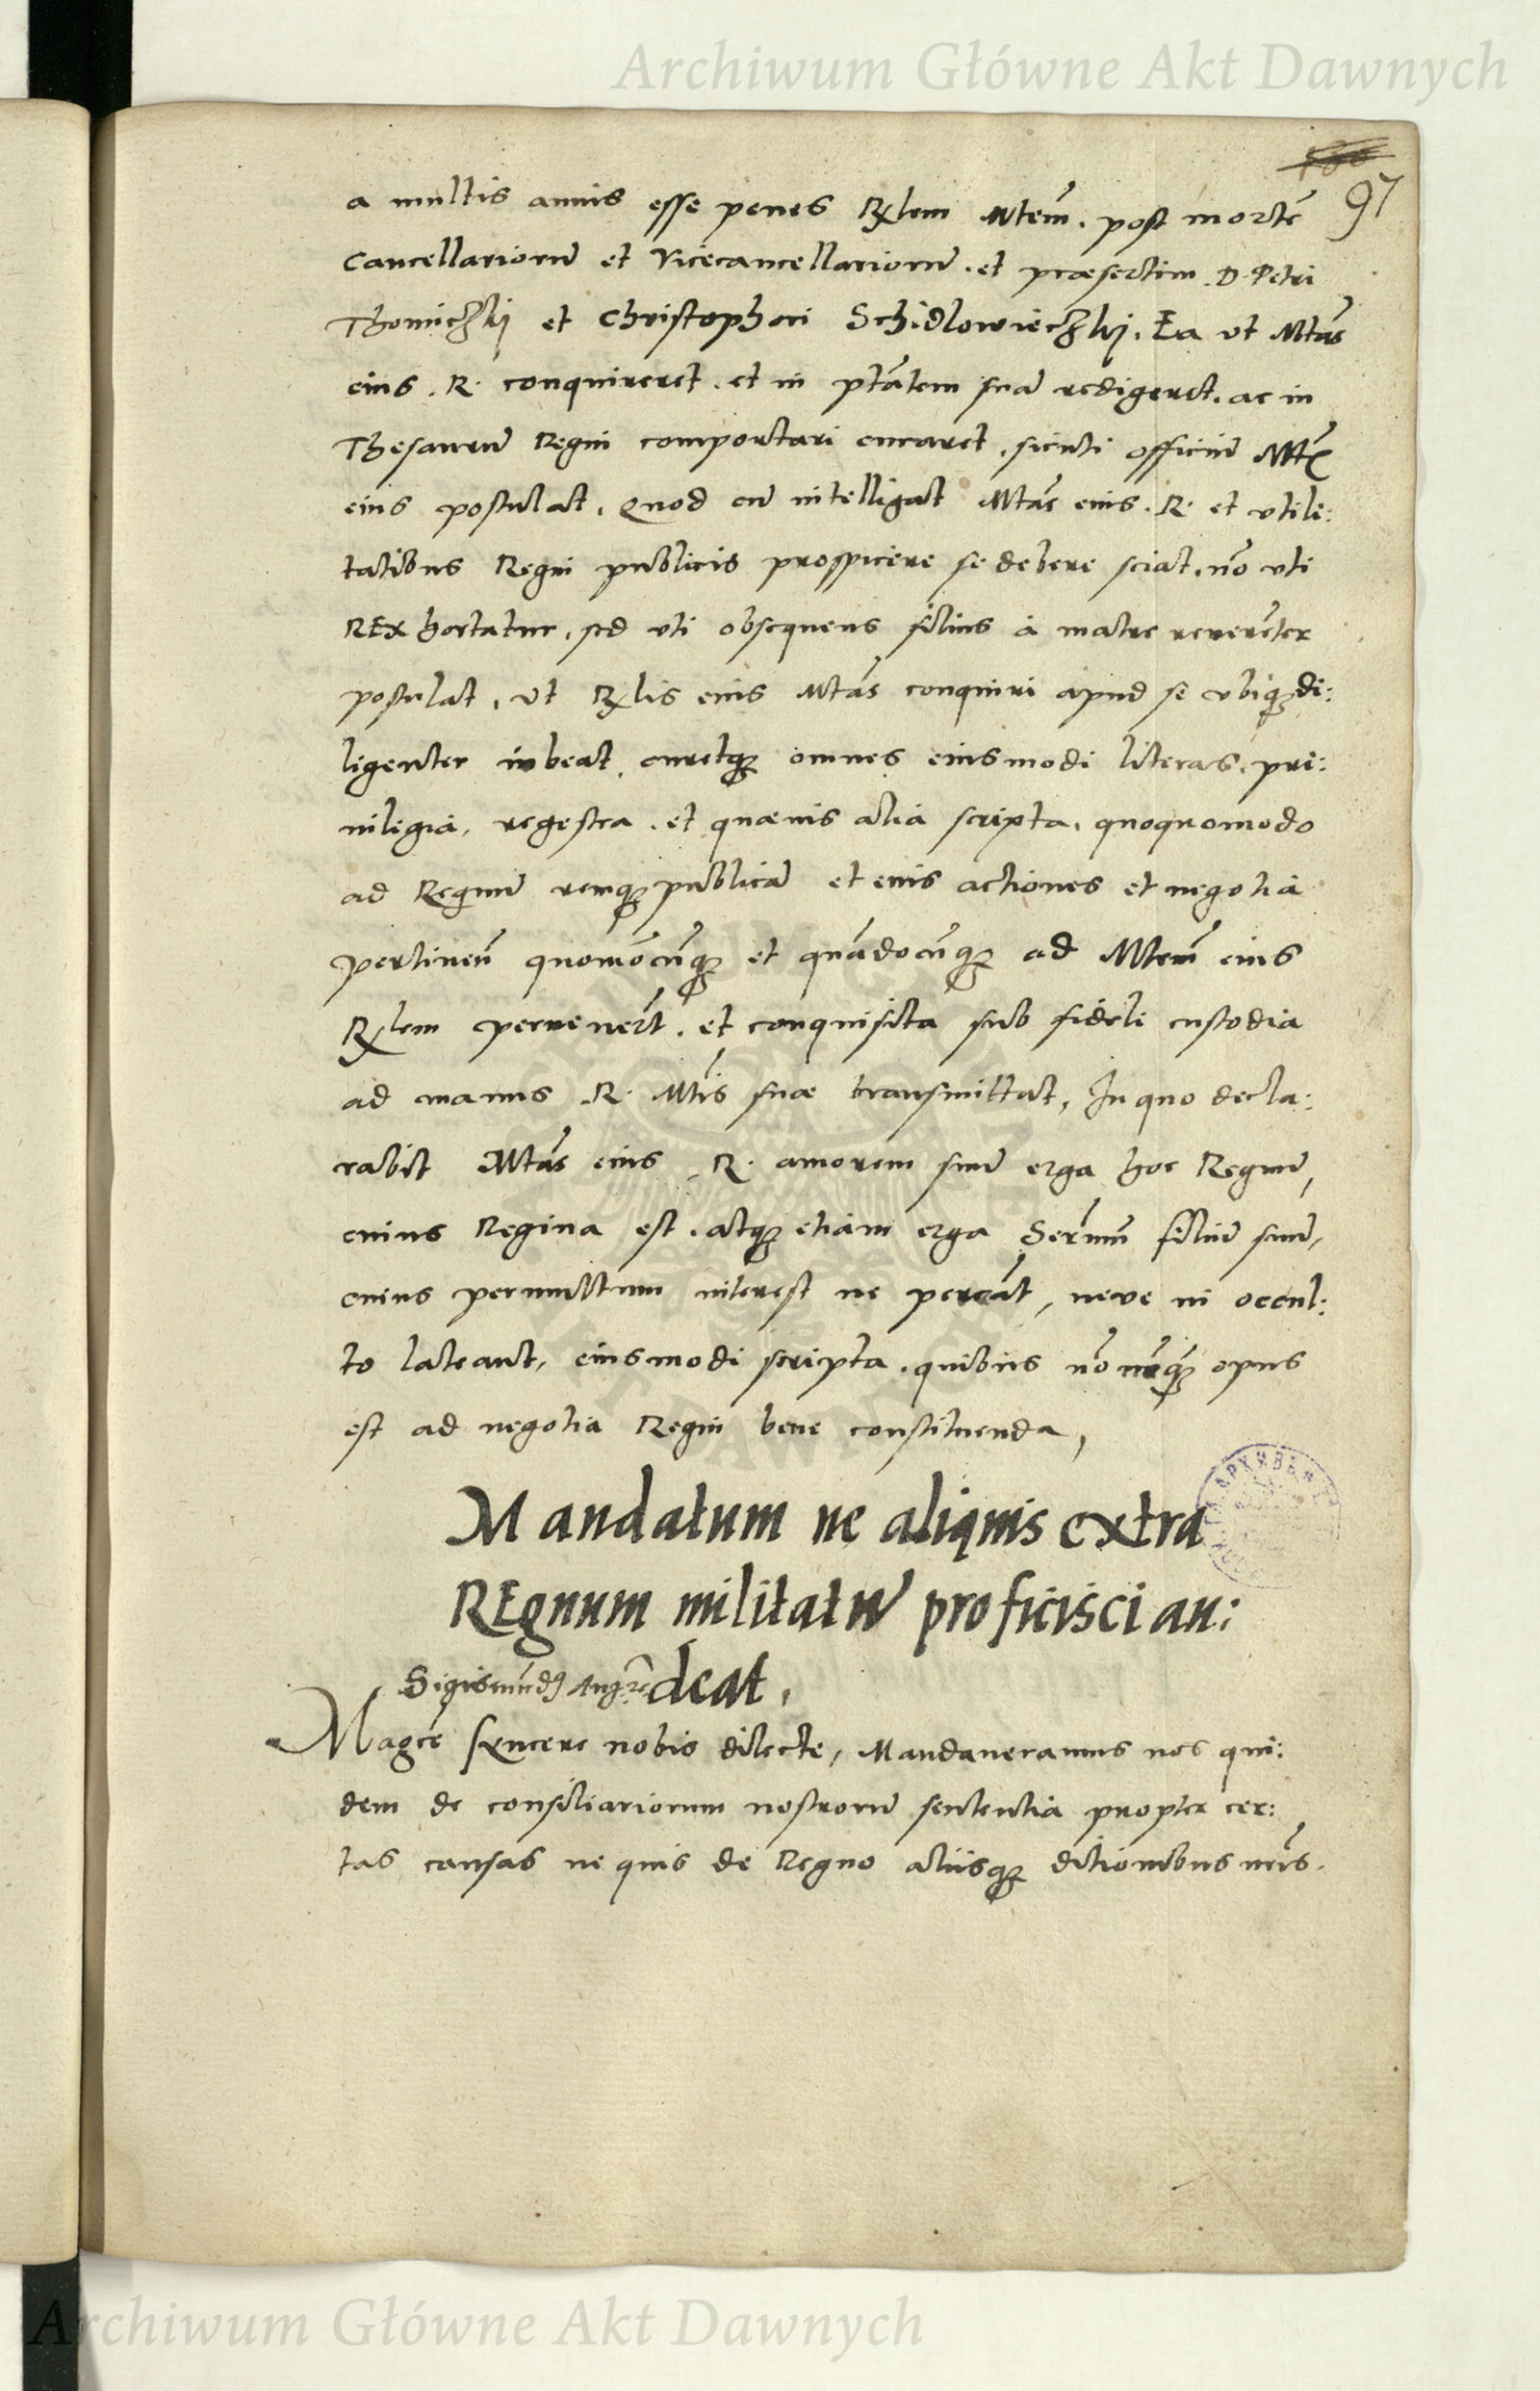 Archiwum Główne Akt Dawnych
97
a multis annis esse penes Rxlem Mtem̄. post mortē
Cancellariorū et Vicecancellariorū. et præsertim D. Petri
Thomiczkij et Christophori Schidlowieczkij. Ea vt Mtas
eius. R. conquireret. et in ptātem suā redigeret. ac in
Thesaurū Regni comportari curaret, sicuti officiū Mtis
eius postulat. Quod cū intelligat Mtas eius. R. et vtili:
tatibus Regni publicis prospicere se debere sciat. nō vti
REx hortatur, sed vti obsequens filius á matre reverēter
postulat, vt Rxlis eius Mtas conquiri apud se vbiq̃ di:
ligenter iubeat, curetq̃ omnes eiusmodi literas, pri:
uilegia, regestra. et quæuis alia scripta, quoquomodo
ad Regnū remq̃ publicā et eius actiones et negotia
pertineñ quomōcūq̃ et quādocūq̃ ad Mtem eius
Rxlem pervenerīt. et conquisita sub fideli custodia
ad manus R. Mtis suæ transmittat, In quo decla:
rabit Mtas eius R. amorem suū erga hoc Regnū,
cuius Regina est. atq̃ etiam erga Sermū filiū suū,
cuius permultum interest ne pereāt, neve in occul:
to lateant, eiusmodi scripta. quibus nō nūq̃ opus
est ad negotia Regni bene constituenda,
Mandatum ne aliquis extra
REgnum militatū proficisci au:
deat,
Sigismūdꝰ Aug: rē
Magcē syncere nobis dilecte, Mandaueramus nos qui:
dem de consiliariorum nostrorū sententia propter cer:
tas causas ne quis de Regno aliisq̃ ditionibus nris.
Archiwum Główne Akt Dawnych